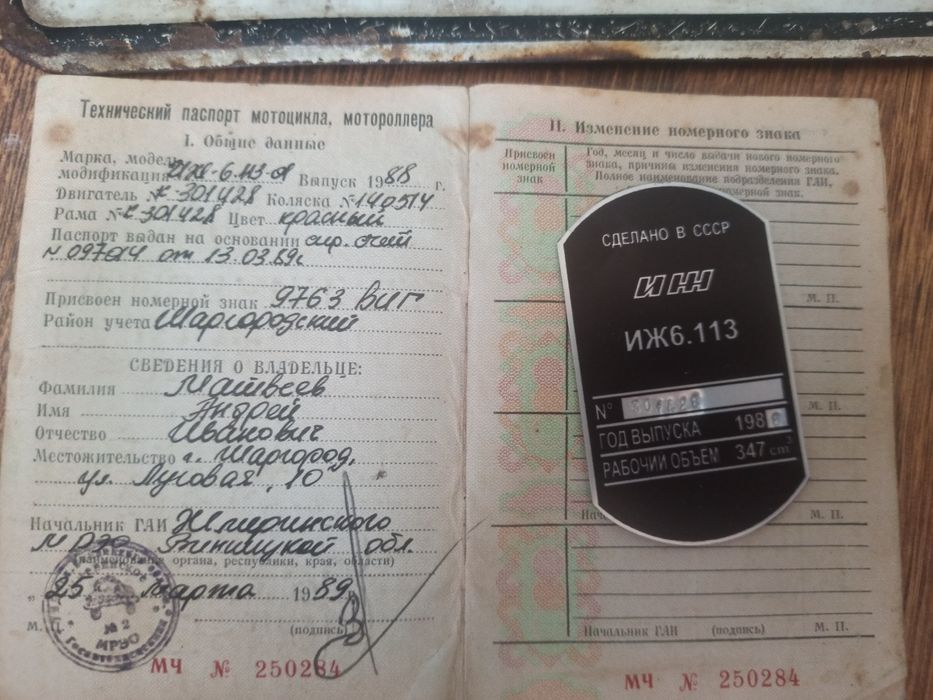 Технический паспорт мотоцикла, мотороллера
I. Общие данные
Марка, модель,
модификация ИЖ-6.113-01 Выпуск 1988 г.
Двигатель № К 301428 Коляска № 140514
Рама № К 301428 Цвет красный
Паспорт выдан на основании спр. счет
от 13.03.89г
Присвоен номерной знак 9763 ВИГ
Район учета Шаргородский
СВЕДЕНИЯ О ВЛАДЕЛЬЦЕ:
Фамилия Матвеев
Имя Андрей
Отчество Иванович
Местожительство г. Шаргород,
ул. Луговая, 10
Начальник ГАИ Жмеринского
МРЭО Винницкой обл.
(наименование органа, республики, края, области)
„25 марта 1989г.
М. П. (подпись)
№ 2
МРЭО
МЧ № 250284
II. Изменение номерного знака
Присвоен
номерной
знак
Год, месяц и число выдачи нового номерного
знака, причина изменения номерного знака.
Полное наименование подразделения ГАИ,
номерной знак.
М. П.
М. П.
М. П.
Начальник ГАИ (подпись) М. П.
МЧ № 250284
СДЕЛАНО В СССР
ИЖ
ИЖ6.113
№
ГОД ВЫПУСКА 1988
РАБОЧИЙ ОБЪЕМ 347 cm³